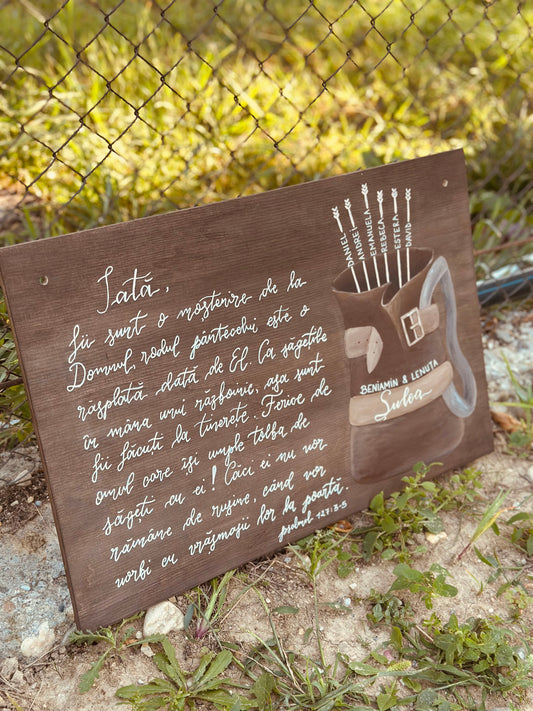 Iată,
fii sunt o moștenire de la
Domnul, rodul pântecelui este o
răsplată dată de El. Ca săgețile
în mâna unui războinic, așa sunt
fii făcuți la tinerețe. Ferice de
omul care își umple tolba de
săgeți cu ei! Căci ei nu vor
rămâne de rușine, când vor
vorbi cu vrăjmașii lor la poartă.
psalmul 127:3-5
DANIEL
ANDREI
EMANUELA
REBECA
ESTERA
DAVID
BENIAMIN & LENUȚA
Sulea